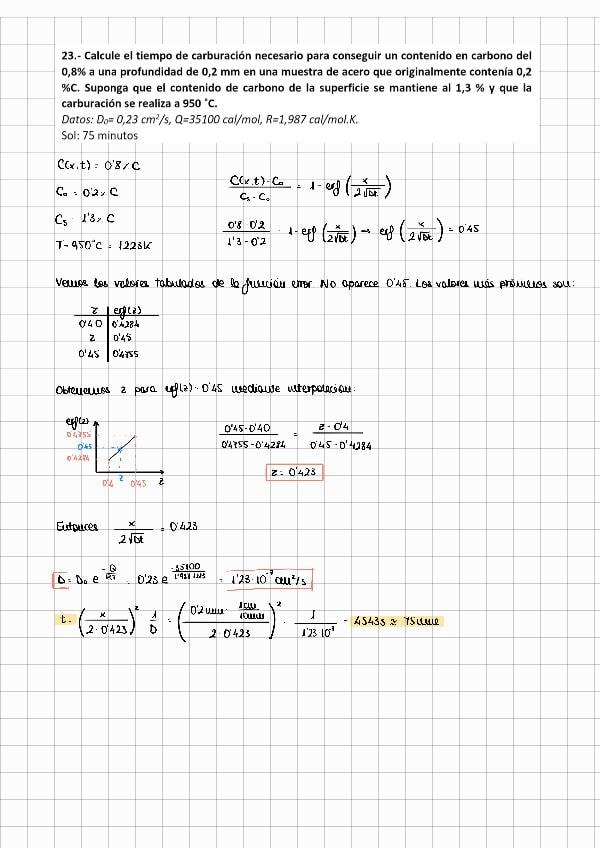 23.- Calcule el tiempo de carburación necesario para conseguir un contenido en carbono del
0,8% a una profundidad de 0,2 mm en una muestra de acero que originalmente contenía 0,2
%C. Suponga que el contenido de carbono de la superficie se mantiene al 1,3 % y que la
carburación se realiza a 950 ˚C.
Datos: D₀= 0,23 cm²/s, Q=35100 cal/mol, R=1,987 cal/mol.K.
Sol: 75 minutos
C(x,t) = 0'8 % C
C₀ = 0'2 % C
Cₛ = 1'3 % C
T = 950°C = 1223K
(C(x,t) - C₀) / (Cₛ - C₀) = 1 - erf (x / 2√Dt)
(0'8 - 0'2) / (1'3 - 0'2) = 1 - erf (x / 2√Dt) → erf (x / 2√Dt) = 0'45
Vemos los valores tabulados de la función error. No aparece 0'45. Los valores más próximos son:
z | erf(z)
0'40 | 0'4284
z | 0'45
0'45 | 0'4755
Obtenemos z para erf(z) = 0'45 mediante interpolación:
erf(z)
0'4755
0'45
0'4284
0'4 z 0'45 z
(0'45 - 0'40) / (0'4755 - 0'4284) = (z - 0'4) / (0'45 - 0'4284)
z = 0'423
Entonces x / 2√Dt = 0'423
D = D₀ e^(-Q/RT) = 0'23 e^(-35100 / 1'987·1223) = 1'23·10⁻⁷ cm²/s
t = (x / 2·0'423)² 1/D = (0'2mm · 1cm/10mm / 2·0'423)² · 1 / 1'23·10⁻⁷ = 4543s ≈ 75min